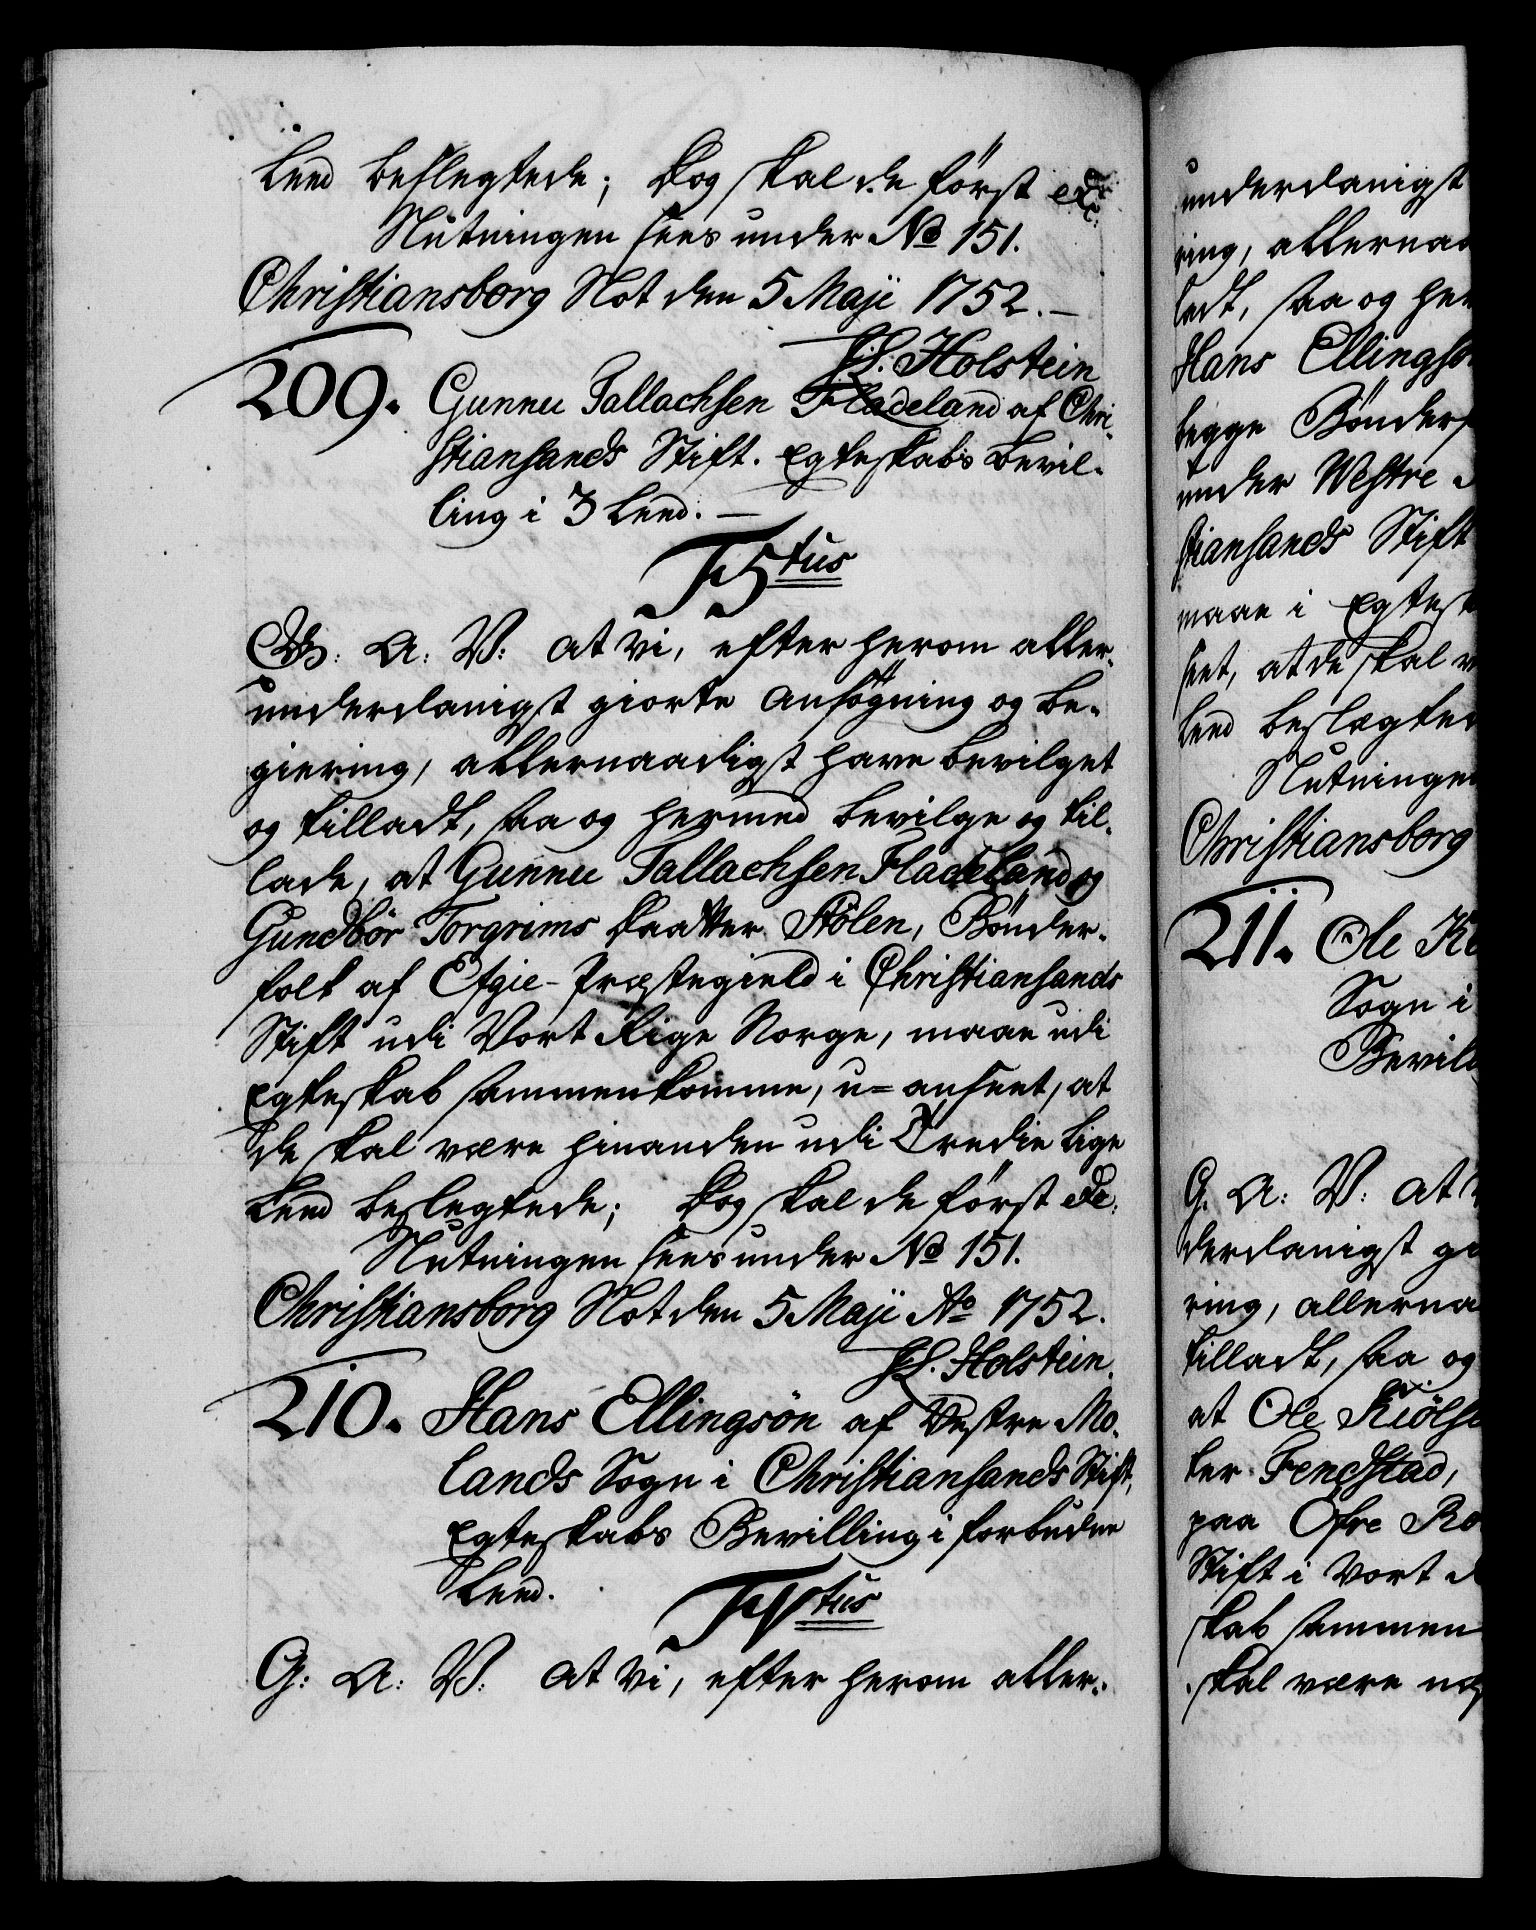 Leed beslegtede; Dog skal de först etc:
Slutningen sees under No 151.
Christiansborg Slot den 5 Maji 1752.
J. L. Holstein
209. Gunnu Tallachsen Fladeland af Chri-
stiansands Stift. Egteskabs Bevil-
ling i 3 Leed.
F5tus
G: A: V: at vi, efter herom aller-
underdanigst giorte Ansögning og Be-
giering, allernaadigst have bevilget
og tilladt, saa og hermed bevilge og til-
lade, at Gunnu Tallachsen Fladeland og
Gundbör Torgrims Daatter Stölen, Bönder-
folk af Efgie-Præstegield i Christiansands
Stift udi Vort Rige Norge, maae udi
Egteskab sammenkomme, u-anseet, at
de skal være hinanden udi Tredie Lige
Leed beslegtede; Dog skal de först etc:
Slutningen sees under No 151.
Christiansborg Slot den 5 Maji Ao 1752.
J. L. Holstein
210. Hans Ellingsön af Vestre Mo-
lands Sogn i Christiansands Stift,
Egteskabs Bevilling i forbudne
Leed.
G: A: V: at vi, efter herom aller-
underdanigst
ring, allernaa
ladt, saa og her
Hans Ellingsö
begge Bönderf
under Westre
stiansands Stift
maae i Egtesk
seet, at de skal
Leed beslægted
Slutningen
Christiansborg
211. Ole
Sogn i
Bevil
G. A: V: at
derdanigst gi
ring, allerna
tilladt, saa og
at Ole Kiöls
ter Fendstad,
paa Öfre Ro
Stift i Vort
skab sammen
skal være